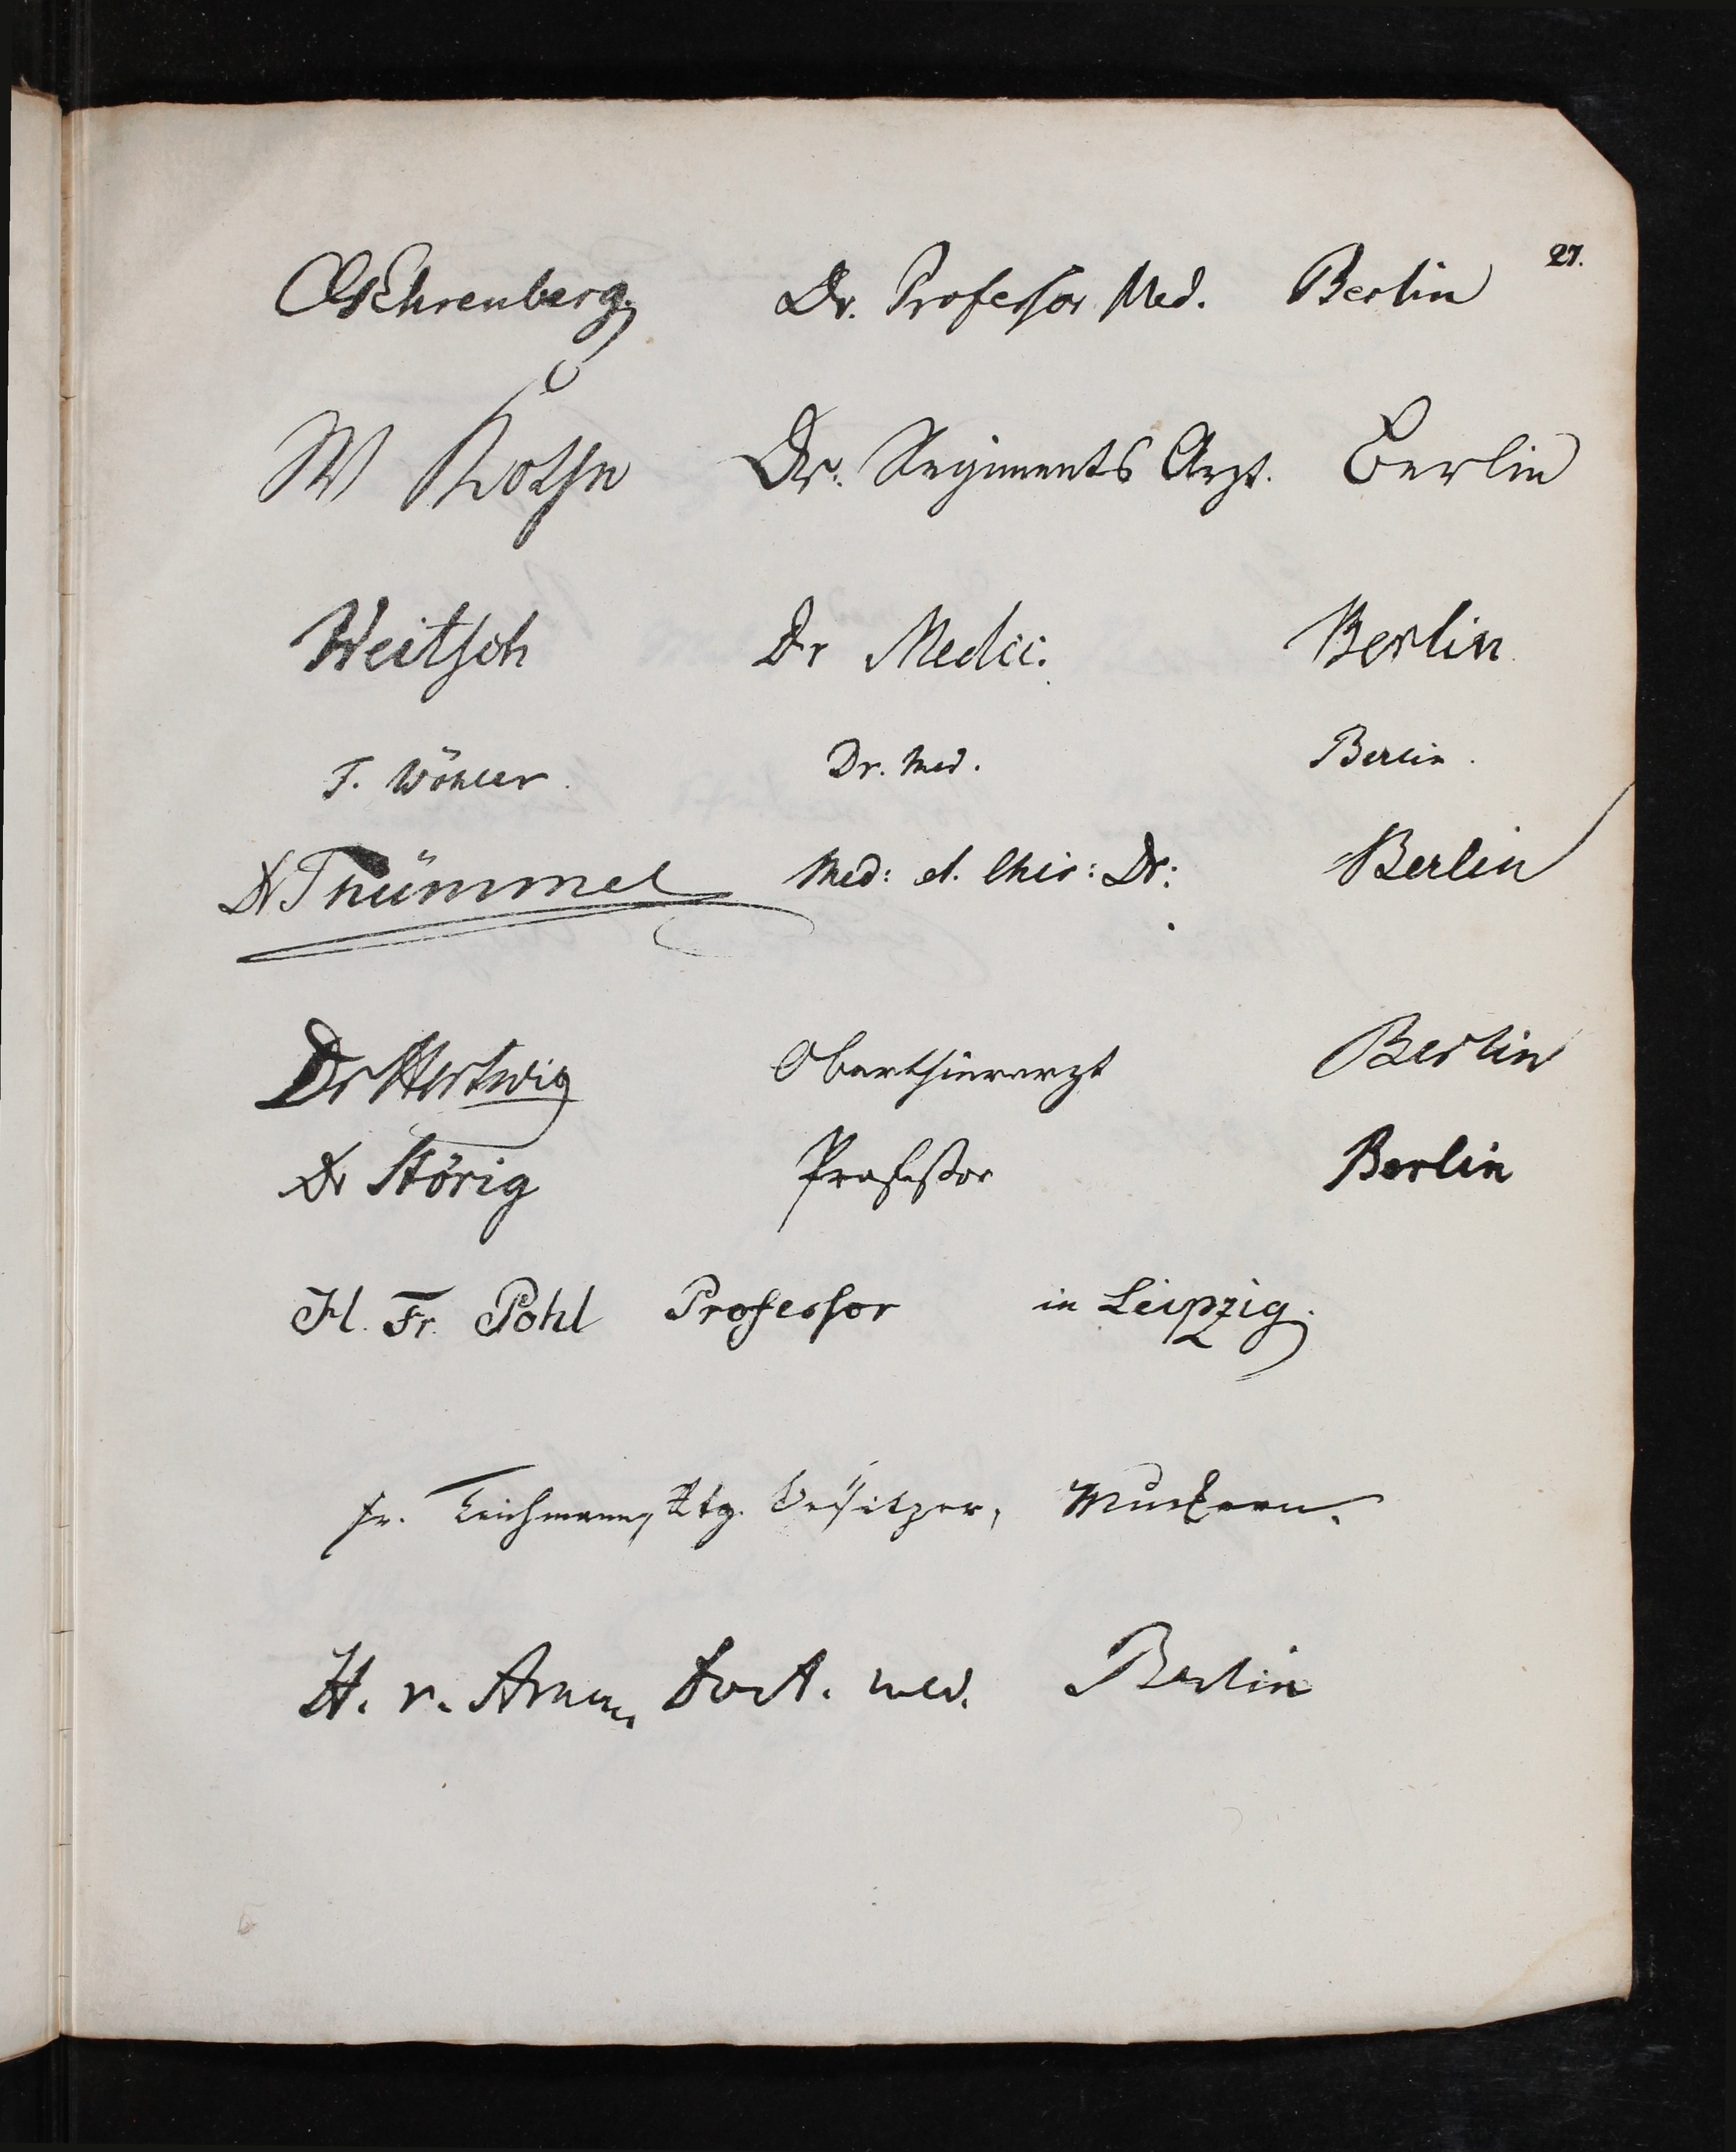 27.
CGEhrenberg. Dr. Professor Med. Berlin
W Rothe Dr. Regiments Arzt. Berlin
Weitsch Dr Medic. Berlin
F. Wöhler. Dr. Med. Berlin.
Dr Thümmel Med: et. Chir: Dr: Berlin
Dr Hertwig Oberthierarzt Berlin
Dr Störig Professor Berlin
H. Fr. Pohl Professor in Leipzig.
Fr. Teichmann, Rtg. Besitzer, Muckern.
H. v. Arnim, Doct. med. Berlin